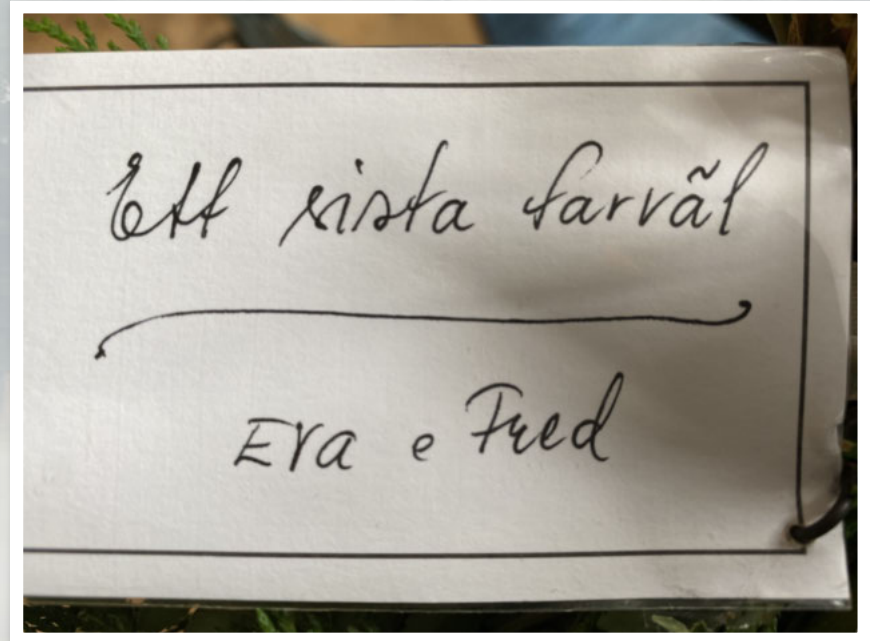 Ett sista farvãl
Eva e Fred